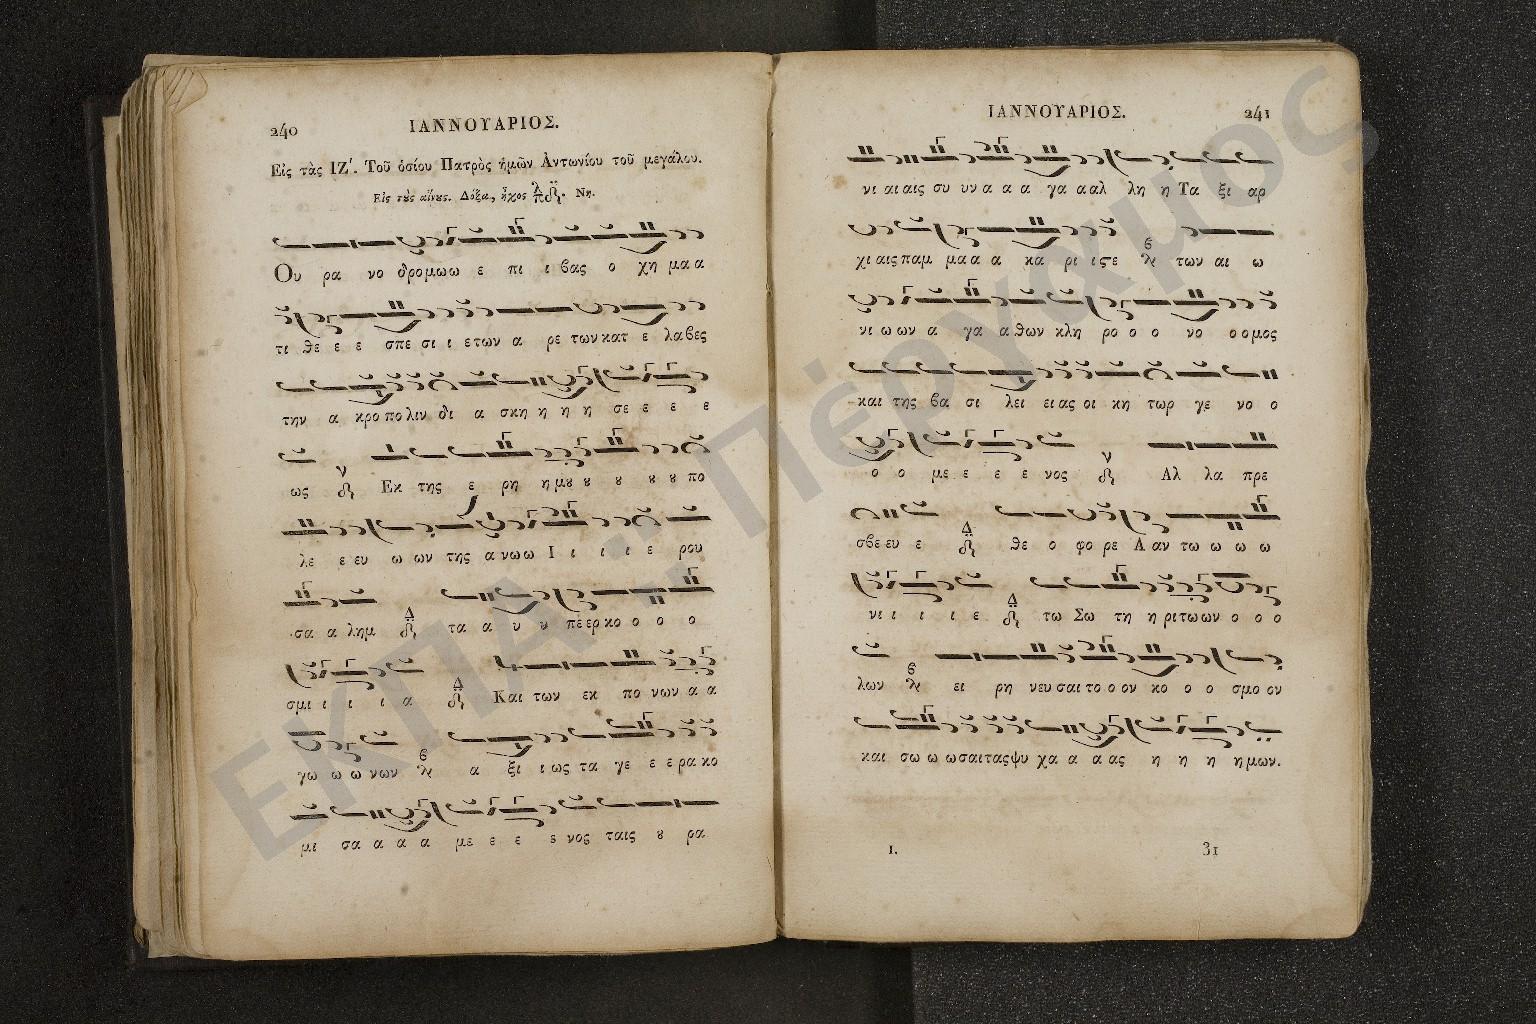 240
ΙΑΝΝΟΥΑΡΙΟΣ.
Εἰς τὰς ΙΖ'. Τοῦ ὁσίου Πατρὸς ἡμῶν Ἀντωνίου τοῦ μεγάλου.
Εἰς τὸς αἴνους. Δόξα, ἦχος Νη.
Ου ρα νο δρομωω ε πι ι βας ο χη μα α
τι θε ε ε σπε σι ι ετων α ρε των κατ ε λαβες
την α κροπολιν δι α σκη η η η σε ε ε ε
ως Εκ της ε ρη η μȣ ȣ ȣ ȣ ȣ πο
λε ε ευ ω ων της α νωω Ι ι ι ι ε ρου
σα α λημ τα α υ υ πε ερ κο ο ο ο
σμι ι ι ι α Και των εκ πο νων α α
γω ω ω νων α ξι ι ως τα γε ε ε ρα κο
μι σα α α α με ε ε ε νος ταις ȣ ρα
ΙΑΝΝΟΥΑΡΙΟΣ.
241
νι αι αις συ υν α α α γα α αλ λη η Τα ξι αρ
χι αις παμ μα α α κα ρι ι στε των αι ω
νι ω ων α γα α θων κλη ρο ο ο νο ο ο μος
και της βα σι λει ει ας οι κη τωρ γε νο ο
ο ο με ε ε ε νος Αλ λα πρε
σβε ευ ε θε ο φο ρε Α αν τω ω ω ω
νι ι ι ι ε τω Σω τη η ρι τωων ο ο ο
λων ει ρη νευ σαι το ο ον κο ο ο σμο ον
και σω ω ωσαιταςψυ χα α α ας η η η ημων.
Ι.
31
ΕΚΠΑ - Πέργαμος